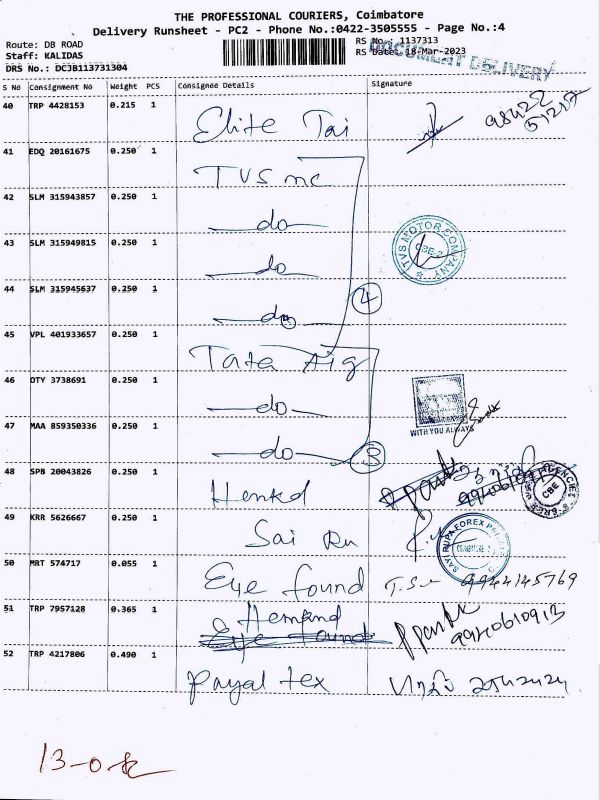 THE PROFESSIONAL COURIERS, Coimbatore
Delivery Runsheet - PC2 - Phone No.:0422-3505555 - Page No.:4
Route: DB ROAD
Staff: KALIDAS
DRS No.: DC3B113731304
RS No.: 1137313
RS Date: 18-Mar-2023
DOCUMENT DELIVERY
S No Consignment No Weight PCS Consignee Details Signature
40 TRP 4428153 0.215 1 Elite Tai
41 EDQ 20161675 0.250 1 TVS mc
42 SLM 315943857 0.250 1 do
43 SLM 315949815 0.250 1 do
TVS MOTOR COMPANY CBE-2
44 SLM 315945637 0.250 1 do 4
45 VPL 401933657 0.250 1 Tata Aig
46 OTY 3738691 0.250 1 do
WITH YOU ALWAYS
47 MAA 859350336 0.250 1 do 3
48 SPB 20043826 0.250 1 CBE
49 KRR 5626667 0.250 1 Sai Ru
SAI RUPA FOREX
50 MRT 574717 0.055 1 Eye found T.S. 9944145769
51 TRP 7957128 0.365 1 Hemand
Eye found
9940610913
52 TRP 4217806 0.490 1 Payal tex